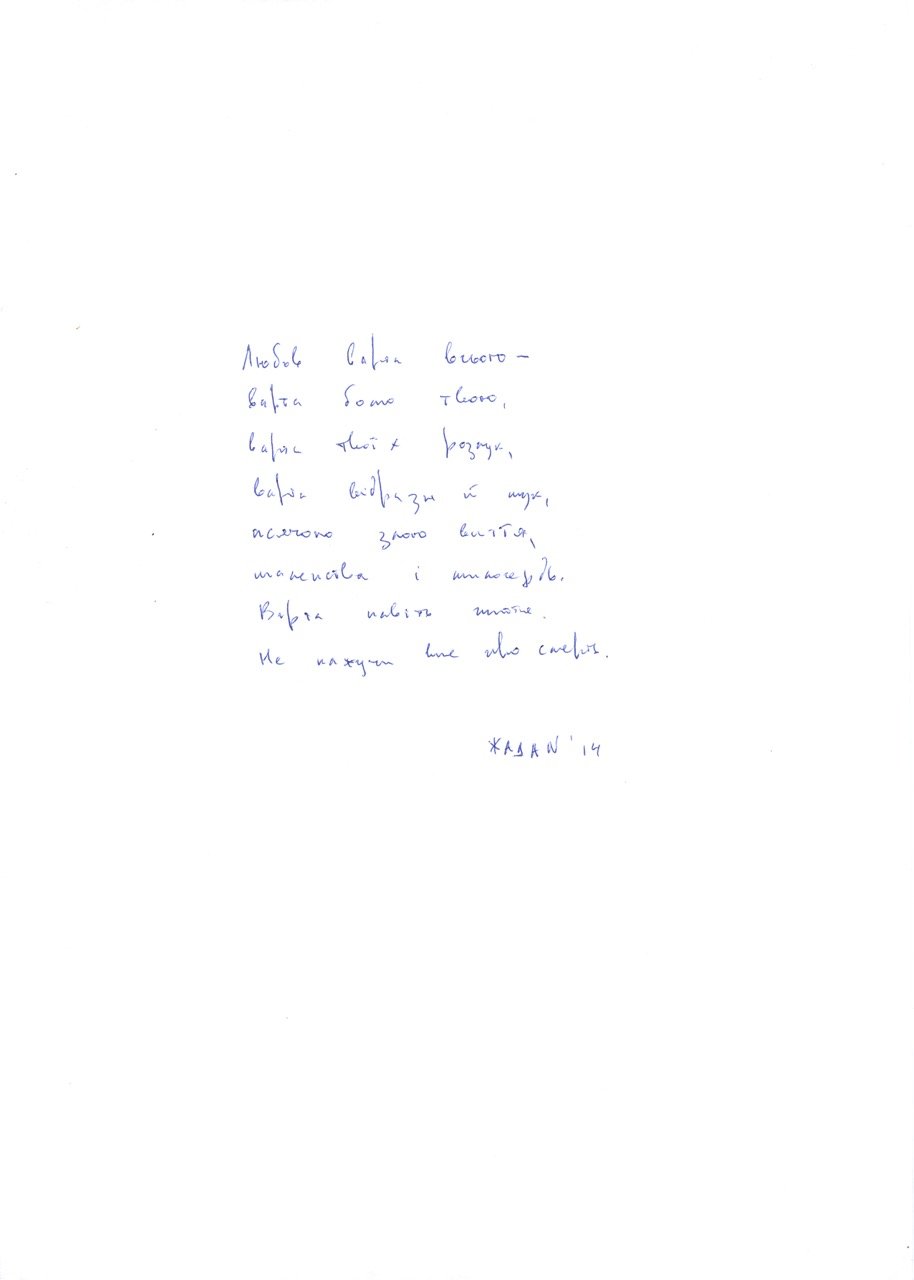 Любов варта всього –
варта болю твого,
варта твоїх розлук,
варта відрази й мук,
псячого злого виття,
шаленства і милосердь.
Варта навіть життя.
Не кажучи вже про смерть.
ЖАДАN '14